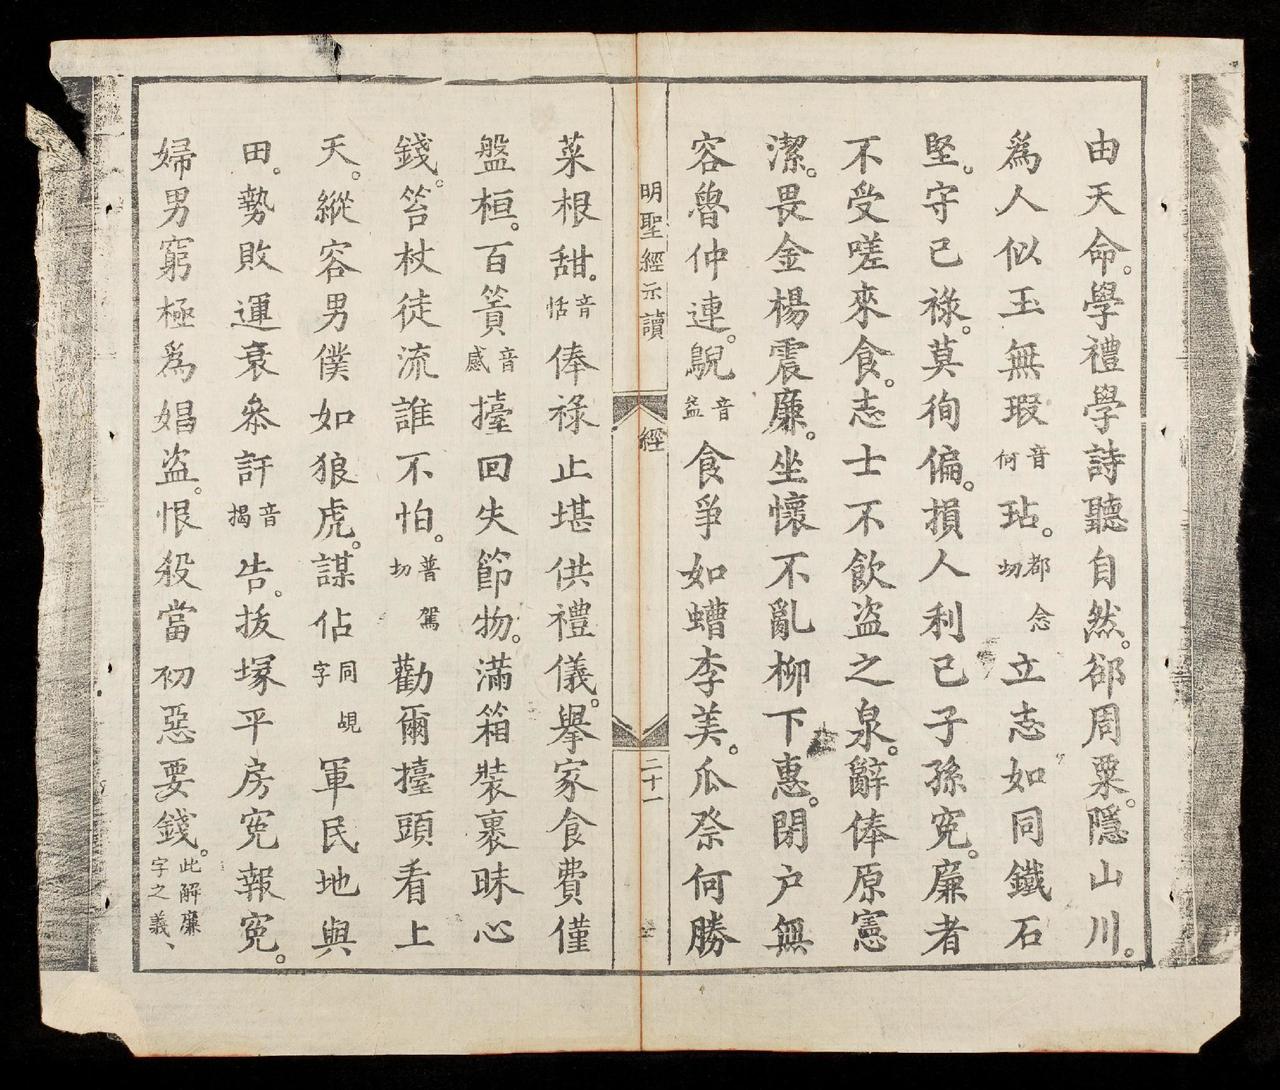 由天命。學禮學詩聽自然。邵周粟。隱山川。
爲人似玉無瑕音何玷。都念切立志如同鐵石
堅。守己祿。莫徇偏。損人利己子孫寃。廉者
不受嗟來食。志士不飮盜之泉。辭俸原憲
潔。畏金楊震廉。坐懷不亂柳下惠。閉户無
容魯仲連。鶃音益食爭如螬李美。瓜祭何勝
明聖經示讀 經 二十一
菜根甜。音恬俸祿止堪供禮儀。擧家食費僅
盤桓。百篢音感擡回失節物。滿箱裝裹昧心
錢。笞杖徒流誰不怕。普駕切勸爾擡頭看上
天。縱容男僕如狼虎。謀佔同覘字軍民地與
田。勢敗運衰叅訐音揭告。拔塚平房寃報寃。
婦男窮極爲娼盜。恨殺當初惡要錢。此解廉字之義、